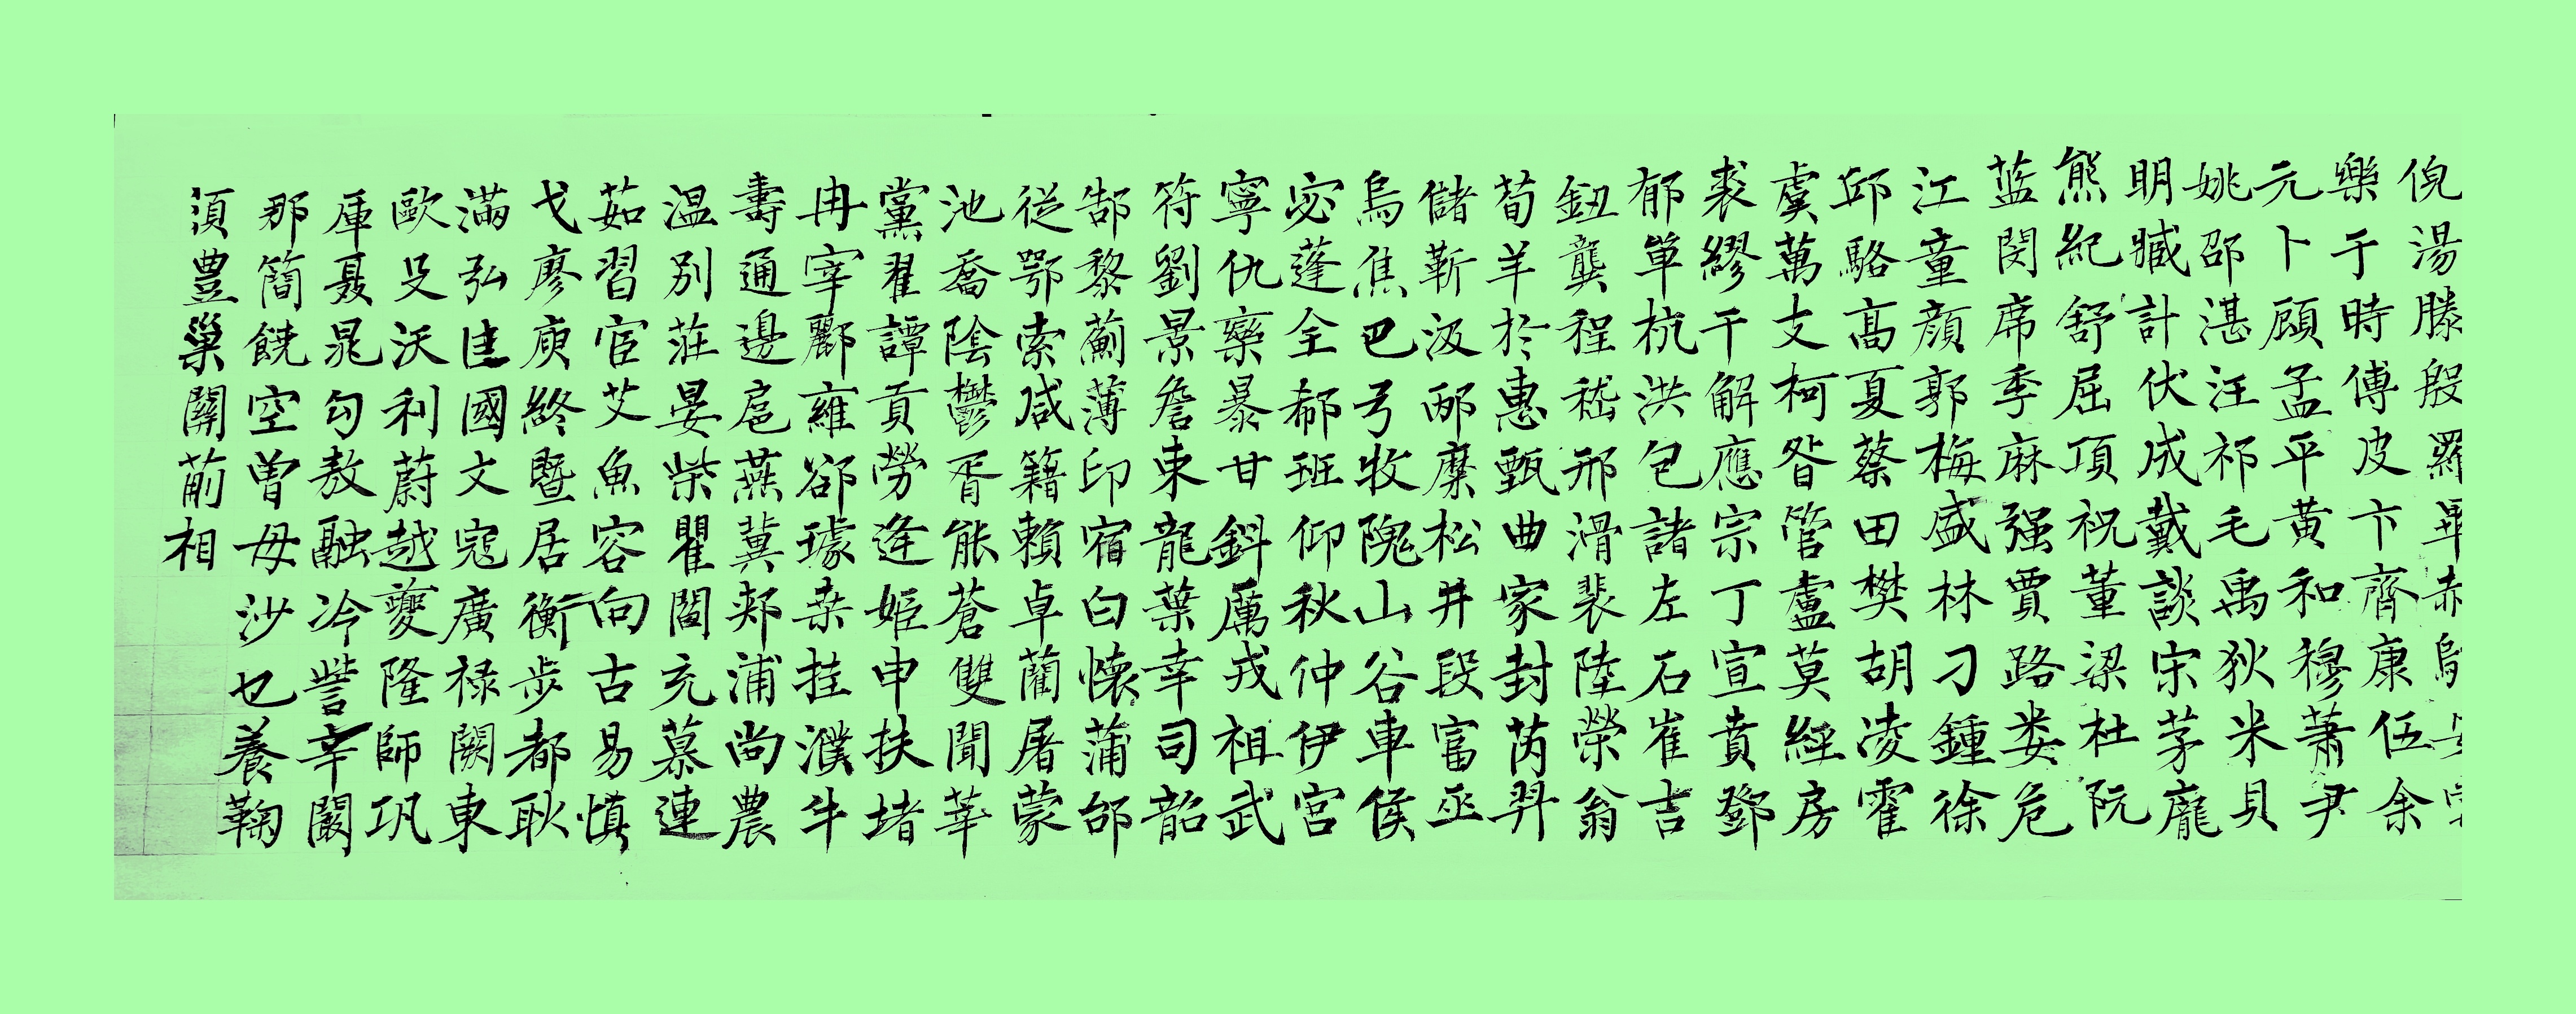 倪湯滕殷羅畢
樂于時傅皮卞齊康伍余
元卜顧孟平黃和穆蕭尹
姚邵湛汪祁毛禹狄米貝
明臧計伏成戴談宋茅龐
熊紀舒屈項祝董梁杜阮
蓝閔席季麻强賈路娄危
江童顔郭梅盛林刁鍾徐
邱駱髙夏蔡田樊胡凌霍
虞萬支柯昝管盧莫經房
裘繆干解應宗丁宣賁鄧
郁單杭洪包諸左石崔吉
鈕龔程嵇邢滑裴陸榮翁
荀羊於惠甄曲家封芮羿
儲靳汲邴糜松井段富巫
烏焦巴弓牧隗山谷車侯
宓蓬全郗班仰秋仲伊宫
寧仇欒暴甘鈄厲戎祖武
符劉景詹束龍葉幸司韶
郜黎薊薄印宿白懷蒲邰
從鄂索咸籍賴卓藺屠蒙
池喬陰鬱胥能蒼雙聞莘
黨翟譚貢勞逄姬申扶堵
冉宰酈雍郤璩桑桂濮牛
壽通邊扈燕冀郟浦尚農
温别莊晏柴瞿閻充慕連
茹習宦艾魚容向古易慎
戈廖庾終暨居衡步都耿
滿弘匡國文寇廣禄闕東
歐殳沃利蔚越夔隆師巩
厙聶晁勾敖融冷訾辛闞
那簡饒空曾毋沙乜養鞠
須豐巢關蒯相